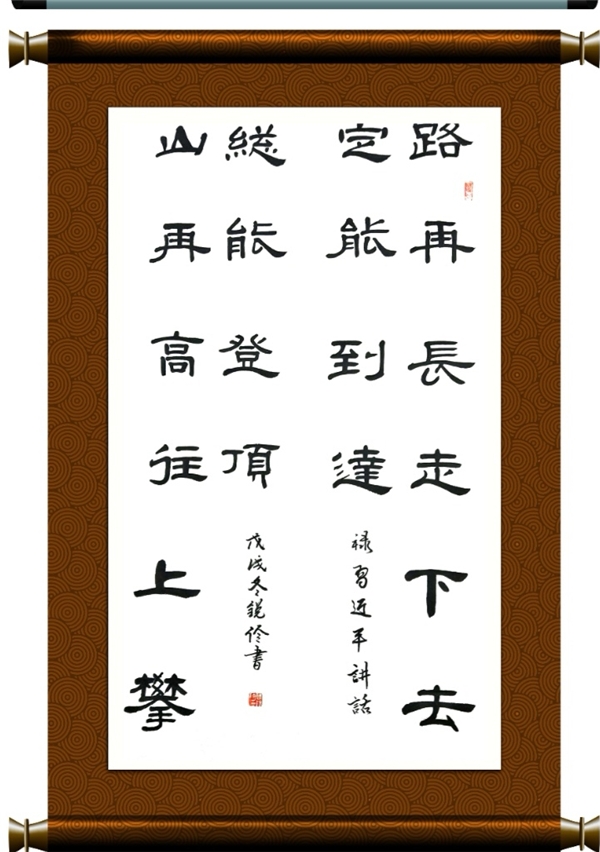 路再長走下去
定能到達
禄習近平讲話
山再高往上攀
総能登頂
戊戌冬銳書